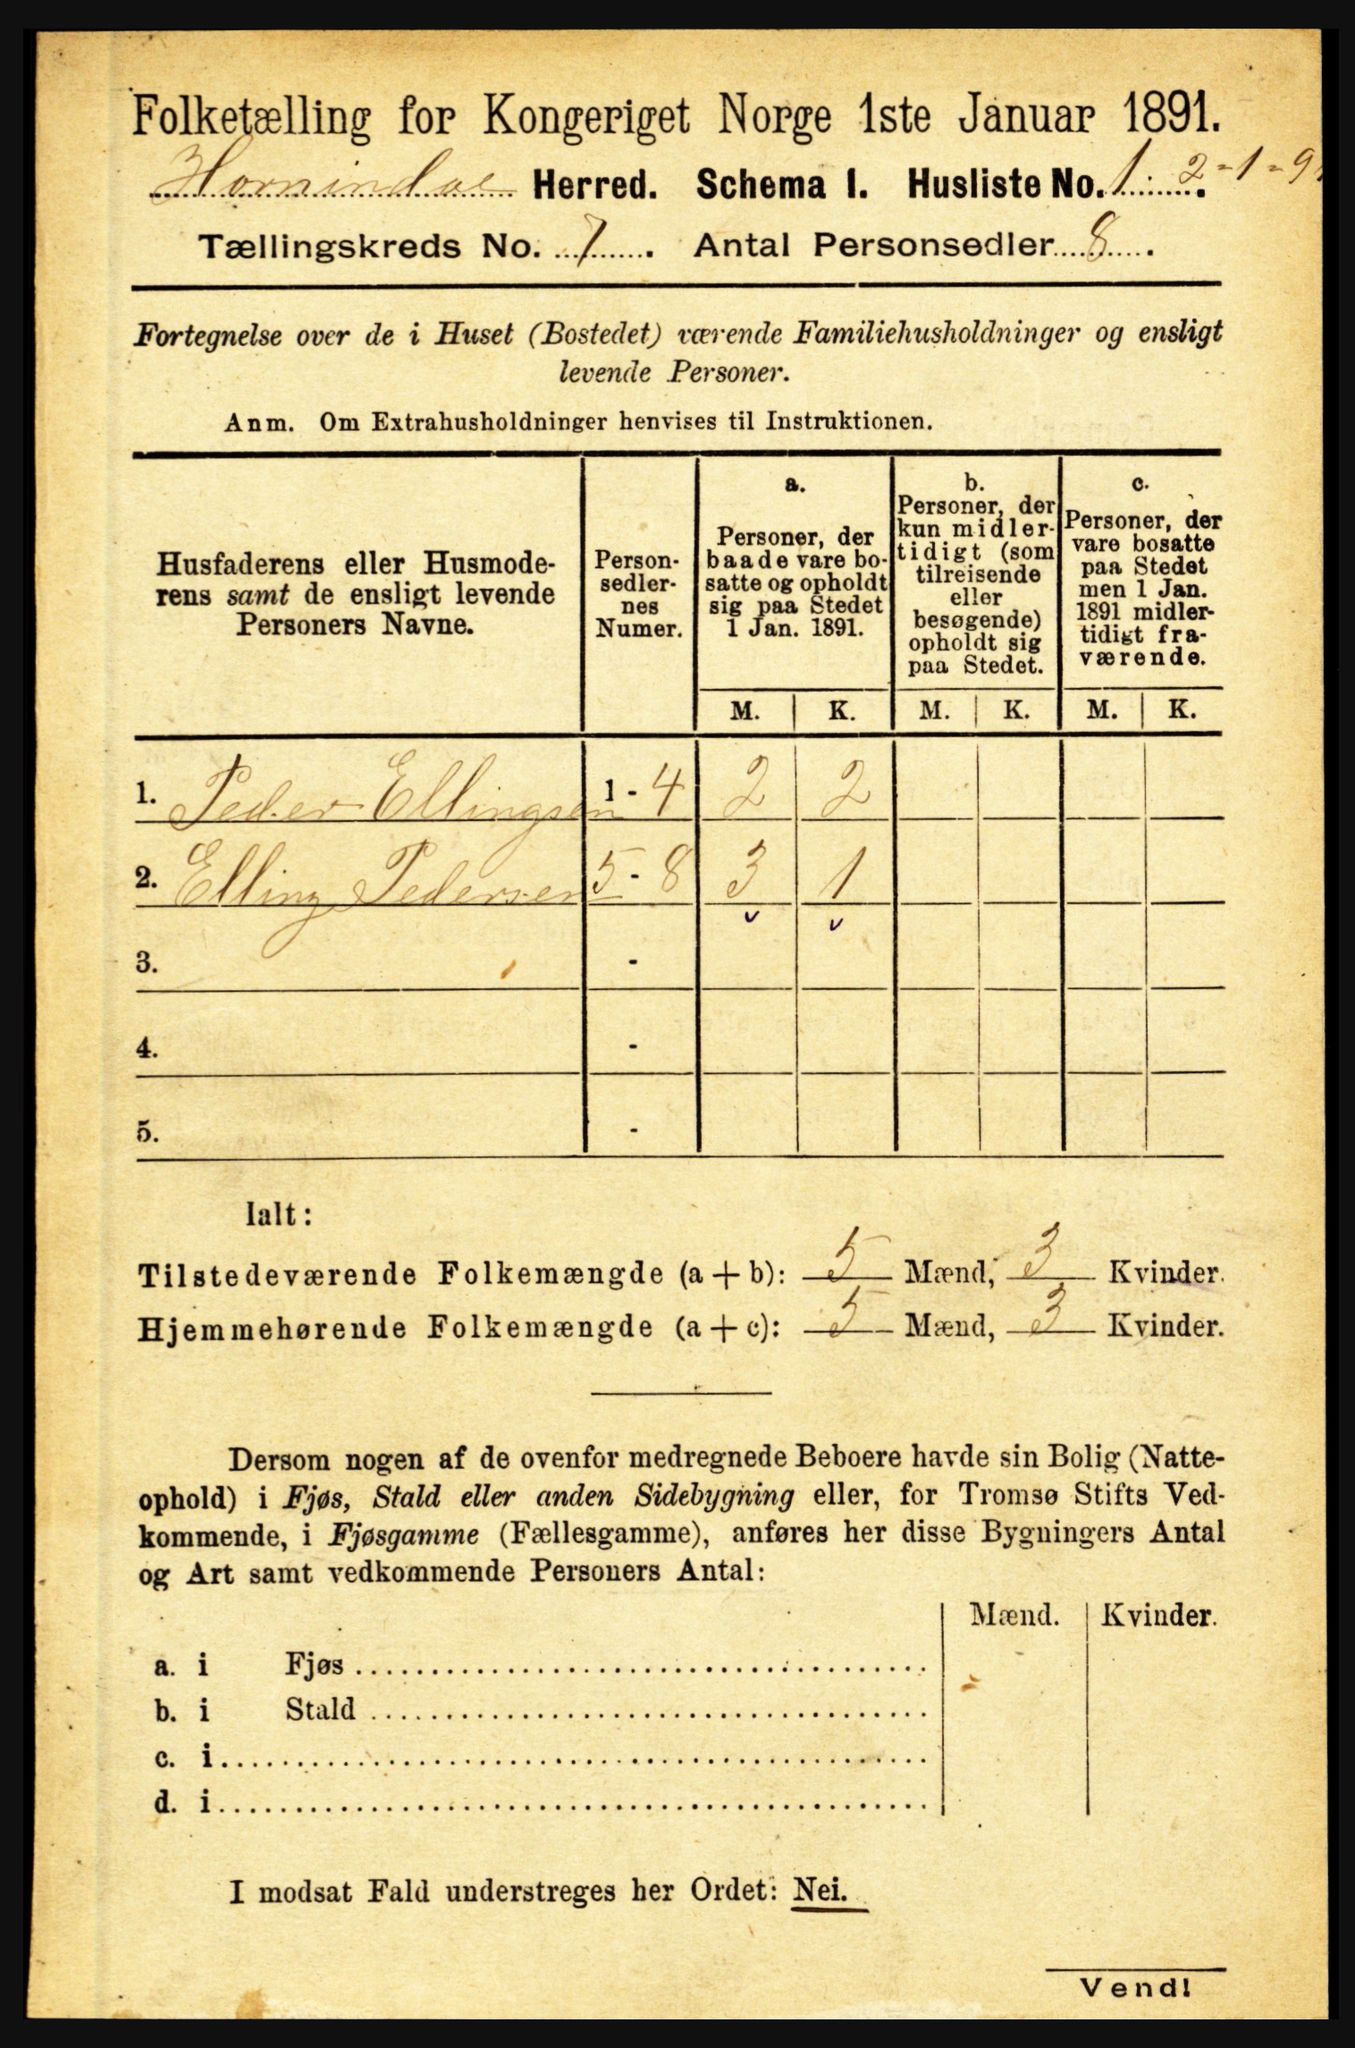 Folketælling for Kongeriget Norge 1ste Januar 1891.
Hornindal Herred. Schema I. Husliste No. 1. 2-1-9
Tællingskreds No. 7. Antal Personsedler 8.
Fortegnelse over de i Huset (Bostedet) værende Familiehusholdninger og ensligt
levende Personer.
Anm. Om Extrahusholdninger henvises til Instruktionen.
Husfaderens eller Husmode-
rens samt de ensligt levende
Personers Navne.
Person-
sedler-
nes
Numer.
a.
Personer, der
baade vare bo-
satte og opholdt
sig paa Stedet
1 Jan. 1891.
b.
Personer, der
kun midler-
tidigt (som
tilreisende
eller
besøgende)
opholdt sig
paa Stedet.
c.
Personer, der
vare bosatte
paa Stedet
men 1 Jan.
1891 midler-
tidigt fra-
værende.
M. K. M. K. M. K.
1. Peder Ellingsen 1 - 4 2 2
2. Elling Pedersen 5 - 8 3 1
3. -
4. -
5. -
Ialt:
Tilstedeværende Folkemængde (a + b): 5 Mænd, 3 Kvinder.
Hjemmehørende Folkemængde (a + c): 5 Mænd, 3 Kvinder.
Dersom nogen af de ovenfor medregnede Beboere havde sin Bolig (Natte-
ophold) i Fjøs, Stald eller anden Sidebygning eller, for Tromsø Stifts Ved-
kommende, i Fjøsgamme (Fællesgamme), anføres her disse Bygningers Antal
og Art samt vedkommende Personers Antal:
Mænd. Kvinder.
a. i Fjøs
b. i Stald
c. i
d. i
I modsat Fald understreges her Ordet: Nei.
Vend!